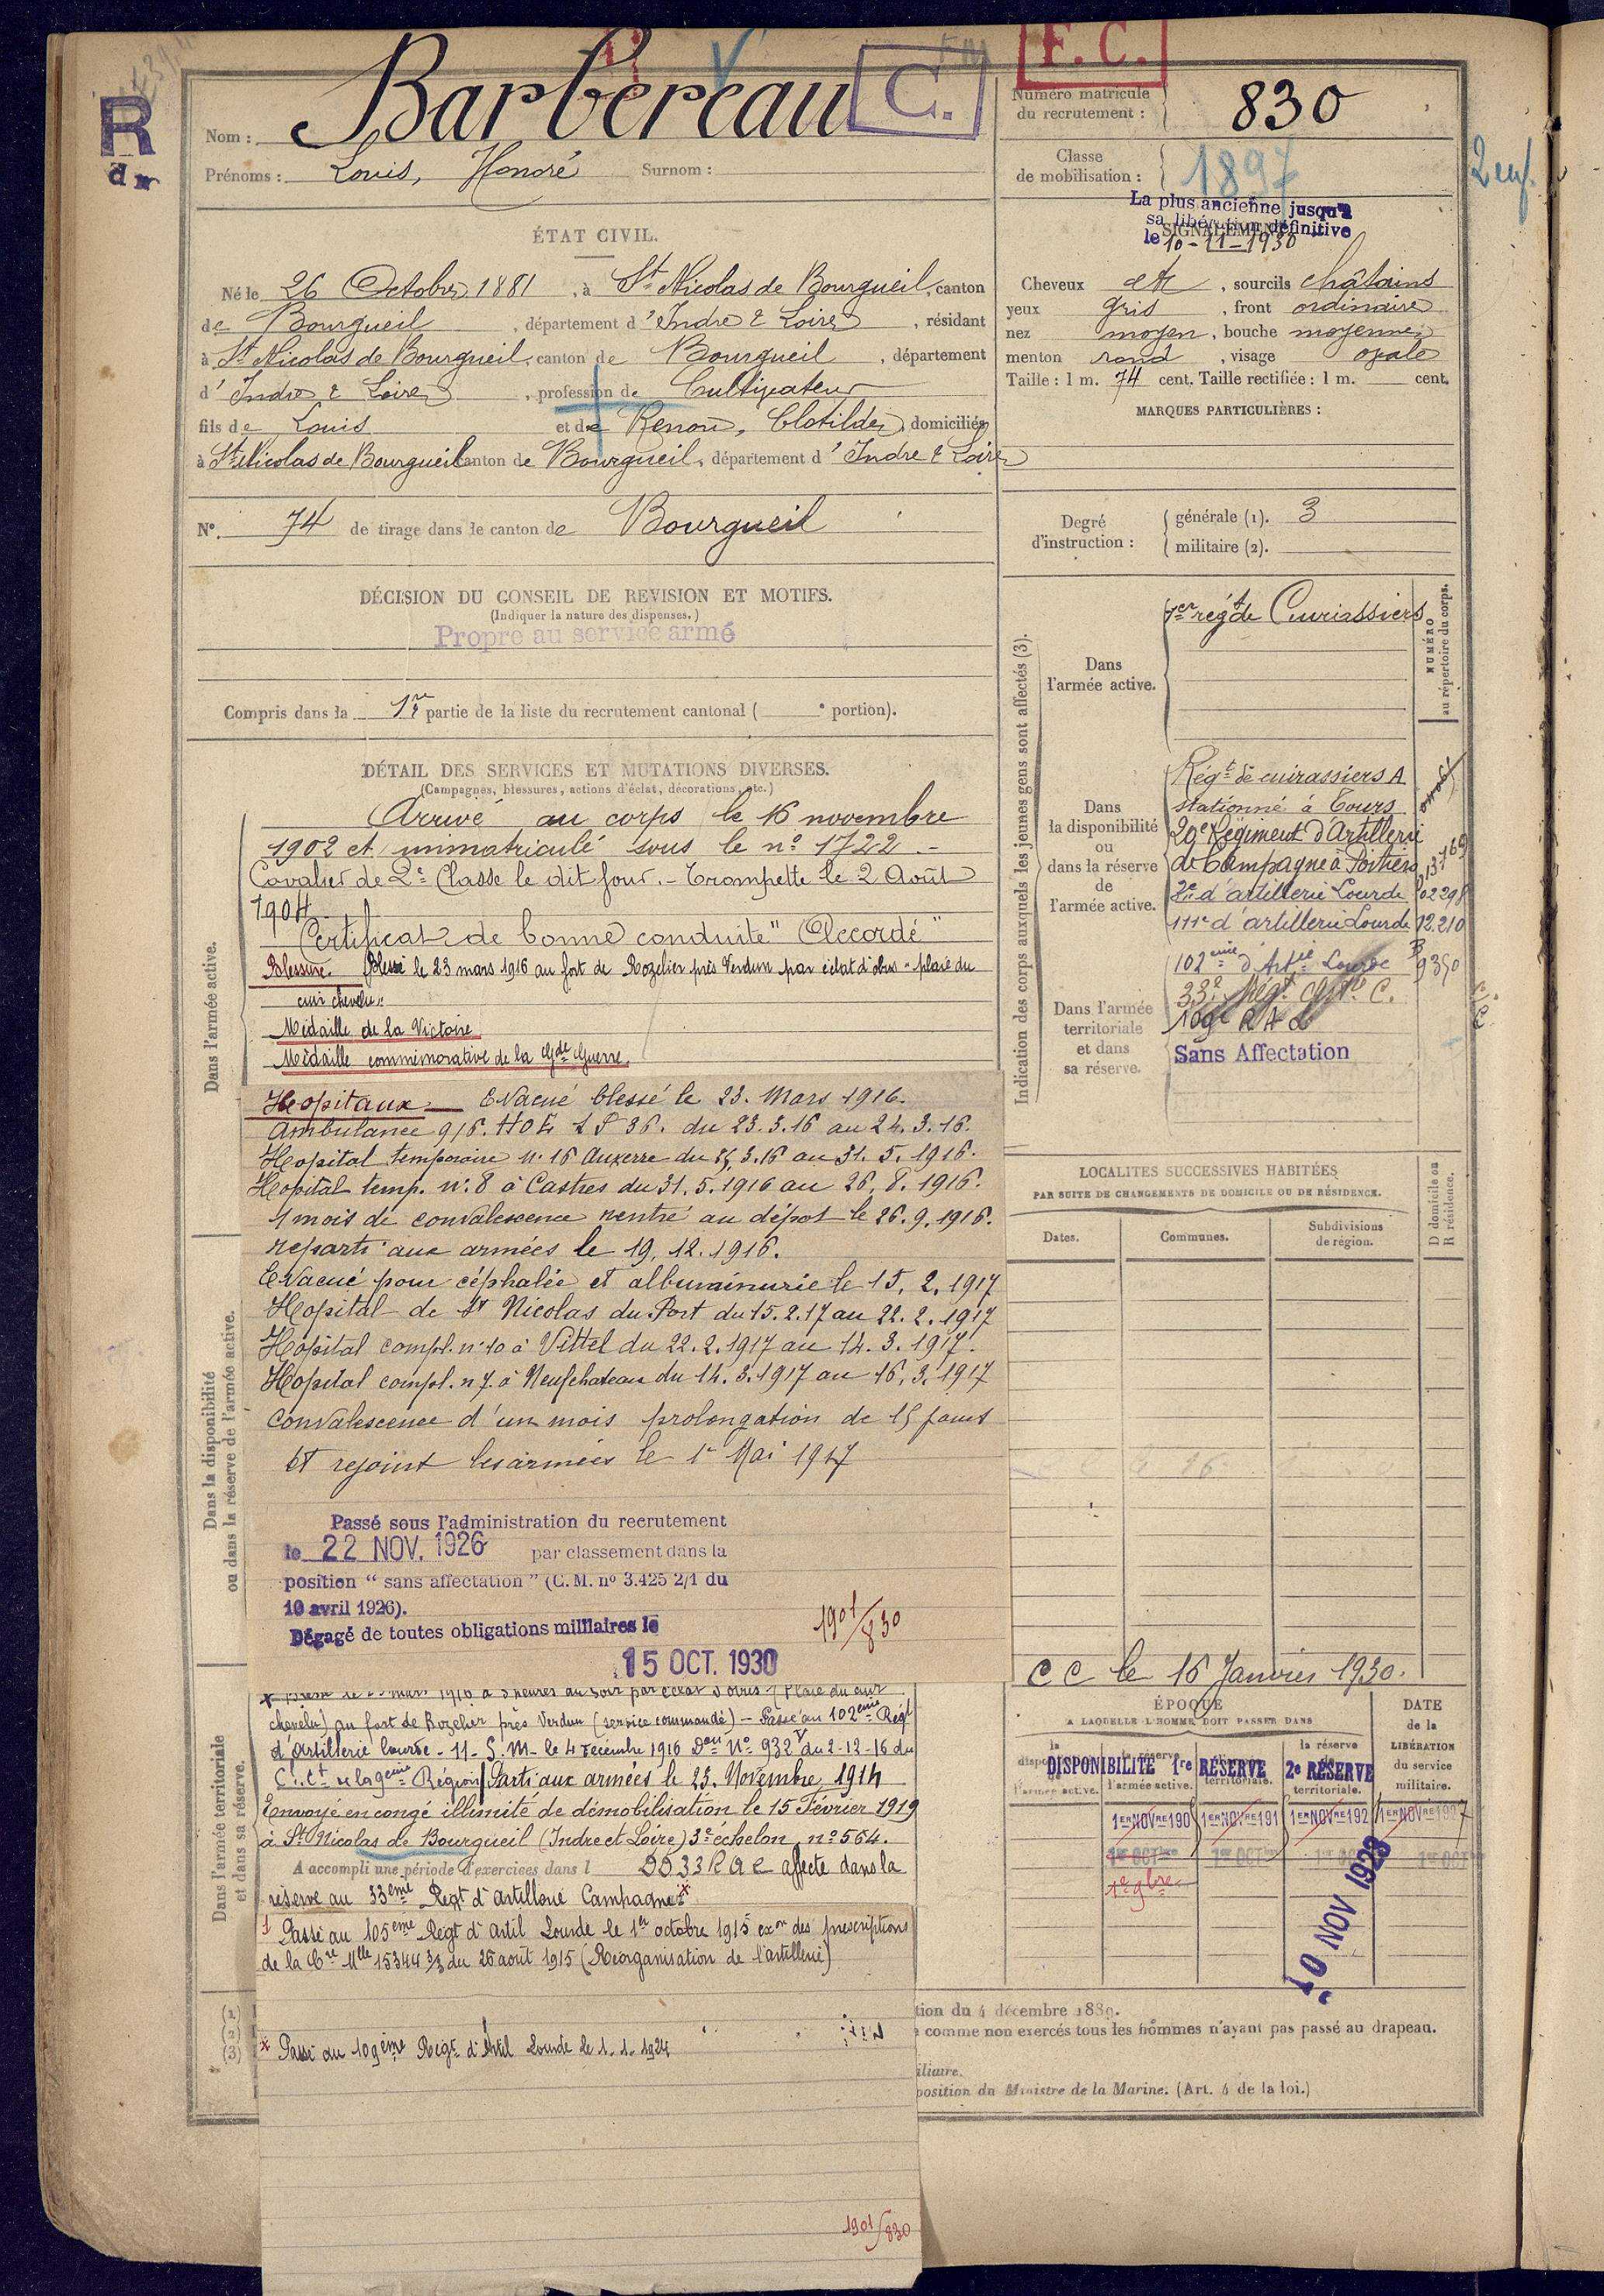 F. C.
R
C.
Nom : Barbereau
Prénoms : Louis, Honoré Surnom :
Numéro matricule
du recrutement : 830
Classe
de mobilisation : 1897
La plus ancienne jusqu'à
sa libération définitive
le 10-11-1930
SIGNALEMENT
ÉTAT CIVIL.
Né le 26 Octobre 1881, à St Nicolas de Bourgueil, canton
de Bourgueil, département d'Indre & Loire, résidant
à St Nicolas de Bourgueil, canton de Bourgueil, département
d'Indre & Loire, profession de Cultivateur
fils de Louis et de Renou, Clotilde, domiciliés
à St Nicolas de Bourgueil canton de Bourgueil, département d'Indre & Loire
Cheveux et, sourcils châtains
yeux gris, front ordinaire
nez moyen, bouche moyenne
menton rond, visage ovale
Taille : 1 m. 74 cent. Taille rectifiée : 1 m. cent.
MARQUES PARTICULIÈRES :
N° 74 de tirage dans le canton de Bourgueil
Degré
d'instruction :
générale (1). 3
militaire (2).
DÉCISION DU CONSEIL DE REVISION ET MOTIFS.
(Indiquer la nature des dispenses.)
Propre au service armé
Compris dans la 1re partie de la liste du recrutement cantonal ( e portion).
Indication des corps auxquels les jeunes gens sont affectés (3).
NUMÉRO
au répertoire du corps.
Dans
l'armée active.
1er régt de Cuirassiers
Dans
la disponibilité
ou
dans la réserve
de
l'armée active.
Régt de cuirassiers A
stationné à Tours
20e Régiment d'Artillerie
de Campagne à Poitiers
2e d'artillerie Lourde 02298
111e d'artillerie Lourde 12.210
Dans l'armée
territoriale
et dans
sa réserve.
102ème d'Artie Lourde 9350
33e Régt C.
109e R A L
Sans Affectation
DÉTAIL DES SERVICES ET MUTATIONS DIVERSES.
(Campagnes, blessures, actions d'éclat, décorations, etc.)
Dans l'armée active.
Arrivé au corps le 16 novembre
1902 et immatriculé sous le n° 1722.-
Cavalier de 2e Classe le dit jour.- Trompette le 2 Août
1904
Certificat de bonne conduite "Accordé"
Blessure. Blessé le 23 mars 1916 au fort de Rozelier près Verdun par éclat d'obus "plaie du
cuir chevelu"
Médaille de la Victoire
Médaille commémorative de la Gde Guerre.
Hopitaux Evacué blessé le 23. Mars 1916.
Ambulance 9/6. HOE S P 36. du 23.3.16 au 24.3.16.
Hopital temporaire n. 16 Auxerre du 25.3.16 au 31.5.1916.
Hopital temp. n. 8 à Castres du 31.5.1916 au 26.8.1916.
1 mois de convalescence rentré au dépot le 26.9.1916.
reparti aux armées le 19.12.1916.
Evacué pour céphalée et albuminurie le 15.2.1917
Hopital de St Nicolas du Port du 15.2.17 au 22.2.1917
Hopital compl. n. 10 à Vittel du 22.2.1917 au 14.3.1917.
Hopital compl. n 7. à Neufchateau du 14.3.1917 au 16.3.1917
convalescence d'un mois prolongation de 15 jours
et rejoint les armées le 1er Mai 1917
Dans la disponibilité
ou dans la réserve de l'armée active.
Passé sous l'administration du recrutement
le 22 NOV. 1926 par classement dans la
position "sans affectation" (C.M. n° 3.425 2/1 du
10 avril 1926).
Dégagé de toutes obligations militaires le
15 OCT. 1930
1901/830
LOCALITÉS SUCCESSIVES HABITÉES
PAR SUITE DE CHANGEMENTS DE DOMICILE OU DE RÉSIDENCE.
Dates.
Communes.
Subdivisions
de région.
D domicile ou
R résidence.
C C le 16 Janvier 1930.
Dans l'armée territoriale
et dans sa réserve.
chevelu) au fort de Rozelier près Verdun (service commandé) - Passé au 102ème Régt
d'Artillerie lourde - 11- S.M- le 4 décembre 1916 Don N° 932 du 2-12-16 du
Ct de la 9eme Région Parti aux armées le 23. Novembre 1914
Envoyé en congé illimité de démobilisation le 15 Février 1919
à St Nicolas de Bourgueil (Indre et Loire) 3e échelon, n° 564.
A accompli une période d'exercices dans l
33 RAC affecté dans la
réserve au 33ème Régt d'Artillerie Campagne
Passé au 105ème Régt d'Artil Lourde le 1er octobre 1915 exon des prescriptions
de la Cre Mlle 15344 3/3 du 26 août 1915 (Réorganisation de l'artillerie)
Passé au 109ème Régt d'Artil Lourde le 1.1.1924
1901/830
ÉPOQUE
À LAQUELLE L'HOMME DOIT PASSER DANS
la réserve
l'armée active.
territoriale.
la réserve
territoriale.
DISPONIBILITÉ 1re RÉSERVE 2e RÉSERVE
DATE
de la
LIBÉRATION
du service
militaire.
1ER NOVRE 190 1ER NOVRE 191 1ER NOVRE 192 1ER NOVRE 1927
10 NOV 1928
(1)
(2)
(3)
tion du 4 décembre 1889.
comme non exercés tous les hommes n'ayant pas passé au drapeau.
iliaire.
position du Ministre de la Marine. (Art. 4 de la loi.)